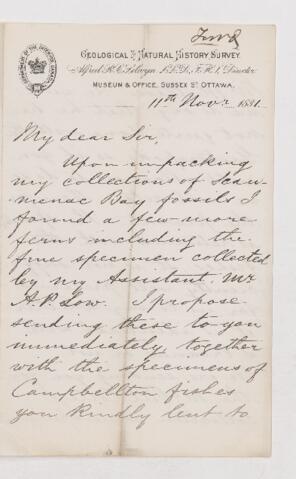 GEOLOGICAL & NATURAL HISTORY SURVEY.
Alfred R. C. Selwyn L.L.D., F.R.S., Director
MUSEUM & OFFICE, SUSSEX ST OTTAWA.
11th Novr. 1881.
My dear Sir,
Upon unpacking
my collections of Scau-
menac Bay fossils I
found a few more
ferns including the
fine specimen collected
by my Assistant, Mr
A. P. Low. I propose
sending these to you
immediately, together
with the specimens of
Campbellton fishes
you kindly lent to